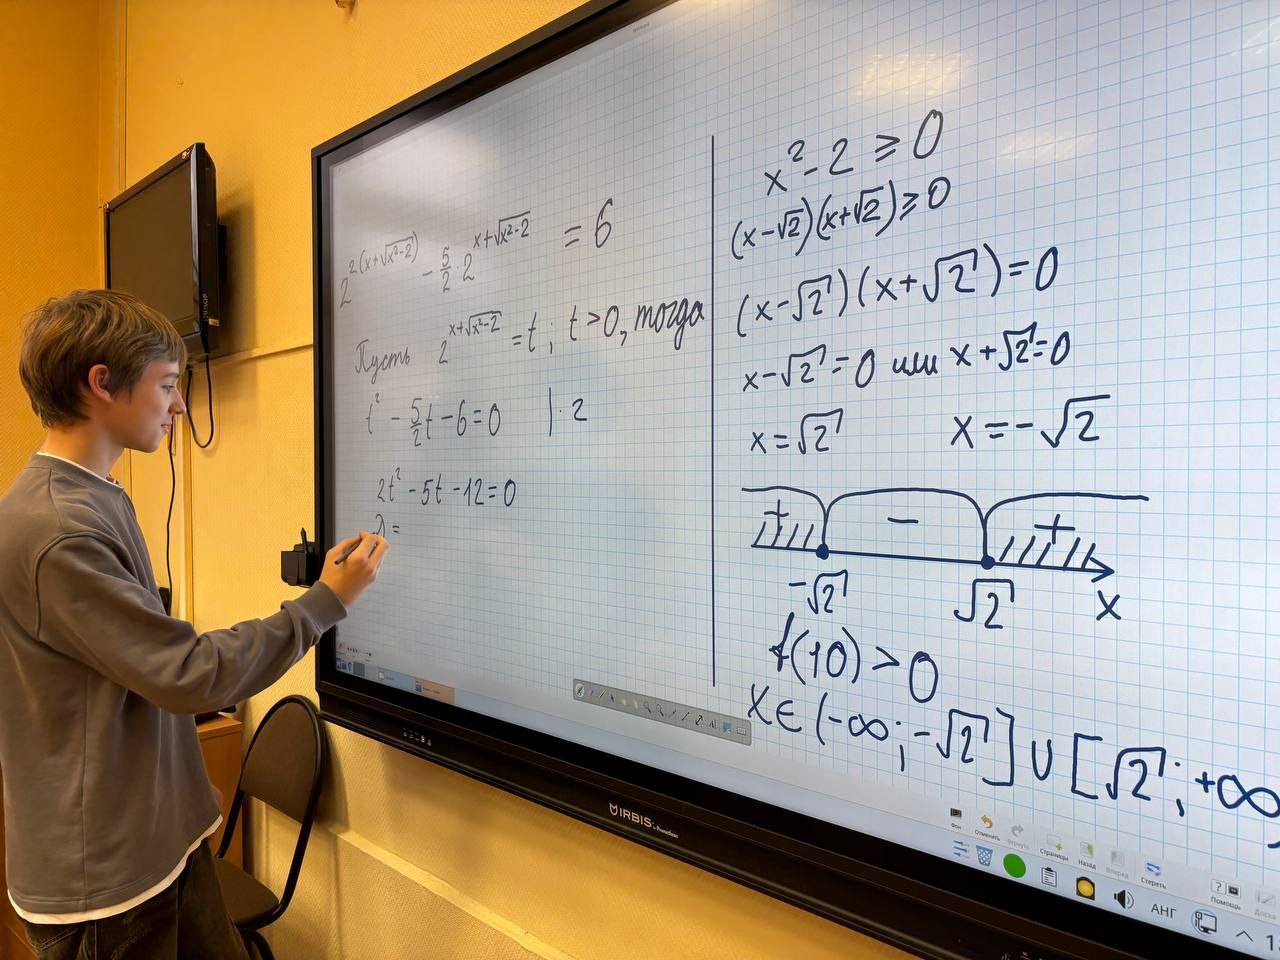 2^{2(x+√(x²-2))} - 5/2 · 2^{x+√(x²-2)} = 6
Пусть 2^{x+√(x²-2)} = t; t > 0, тогда
t² - 5/2 t - 6 = 0 | · 2
2t² - 5t - 12 = 0
x² - 2 ≥ 0
(x-√2)(x+√2) ≥ 0
(x-√2)(x+√2) = 0
x-√2 = 0 или x+√2 = 0
x = √2 x = -√2
+ - +
-√2 √2 x
f(10) > 0
X ∈ (-∞; -√2] ∪ [√2; +∞
IRBIS
Фон Отменить Вернуть Страницы Назад Вперед Стереть Помощь Доска
АНГ